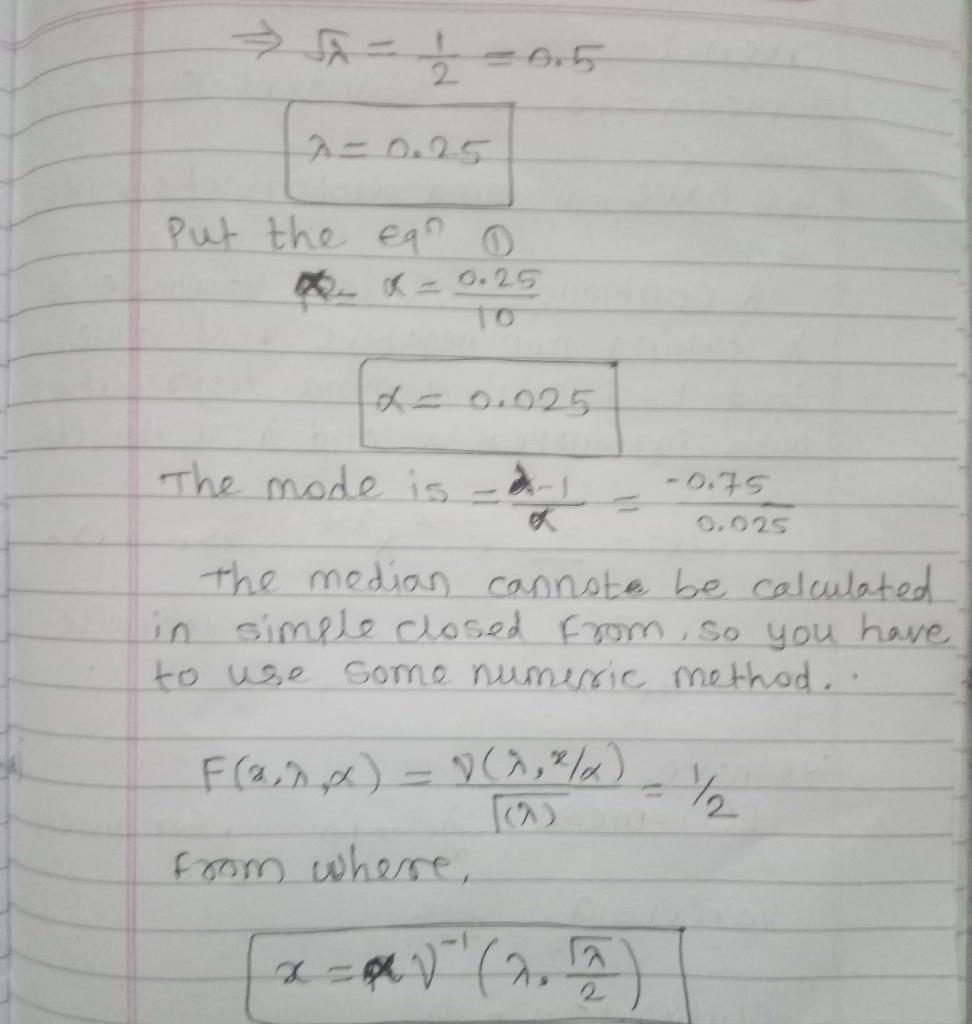 ⇒ √λ = 1/2 = 0.5
λ = 0.25
Put the eqn ①
α = 0.25/10
α = 0.025
The mode is = λ-1/α = -0.75/0.025
the median cannote be calculated
in simple closed from, so you have
to use some numeric method.
F(x,λ,α) = γ(λ,x/α)/Γ(λ) = 1/2
from where,
x = αγ⁻¹(λ, Γλ/2)